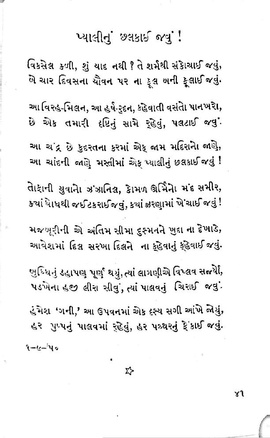 પ્યાલીનું છલકાઈ જવું !
વિકસેલ કળી, શું યાદ નથી ? તે શર્મથી સંકોચાઈ જવું,
બે ચાર દિવસના યૌવન પર ના ફૂલ બની ફૂલાઈ જવું.
આ વિરહ-મિલન, આ હર્ષ-રૂદન, કહેવાતી વસંતો પાનખરો,
છે એક તમારી દૃષ્ટિનું સામે રહેવું, પલટાઈ જવું.
આ ચંદ્ર છે કુદરતના કરમાં એક જામ મદિરાનો જાણે,
આ ચાંદની જાણે મસ્તીમાં એક પ્યાલીનું છલકાઈ જવું.
તોફાની યુવાનો ઝંઝાનિલ, કોમળ ઊર્મિનો મંદ સમીર,
ક્યાં ધોધથી જઈ ટકરાઈ જવું, ક્યાં ઝરણામાં ખેંચાઈ જવું.
મજબૂરીની એ અંતિમ સીમા દુશ્મનને ખુદા ના દેખાડે,
આવેશમાં દિલ સરખા દિલને ના કહેવાનું કહેવાઈ જવું.
બુદ્ધિનું ડહાપણ પૂર્ણ થયું, ત્યાં લાગણીએ વિપ્લવ સર્જ્યો,
પડખેના હજી લીરા સીવું, ત્યાં પાલવનું ચિરાઈ જવું.
હંમેશ ‘ગની,’ આ ઉપવનમાં એક દૃશ્ય સગી આંખે જોયું,
હર પુષ્પનું પાલવમાં રહેવું, હર પથ્થરનું ફેંકાઈ જવું.
૧-૯-’૫૦
૪૧